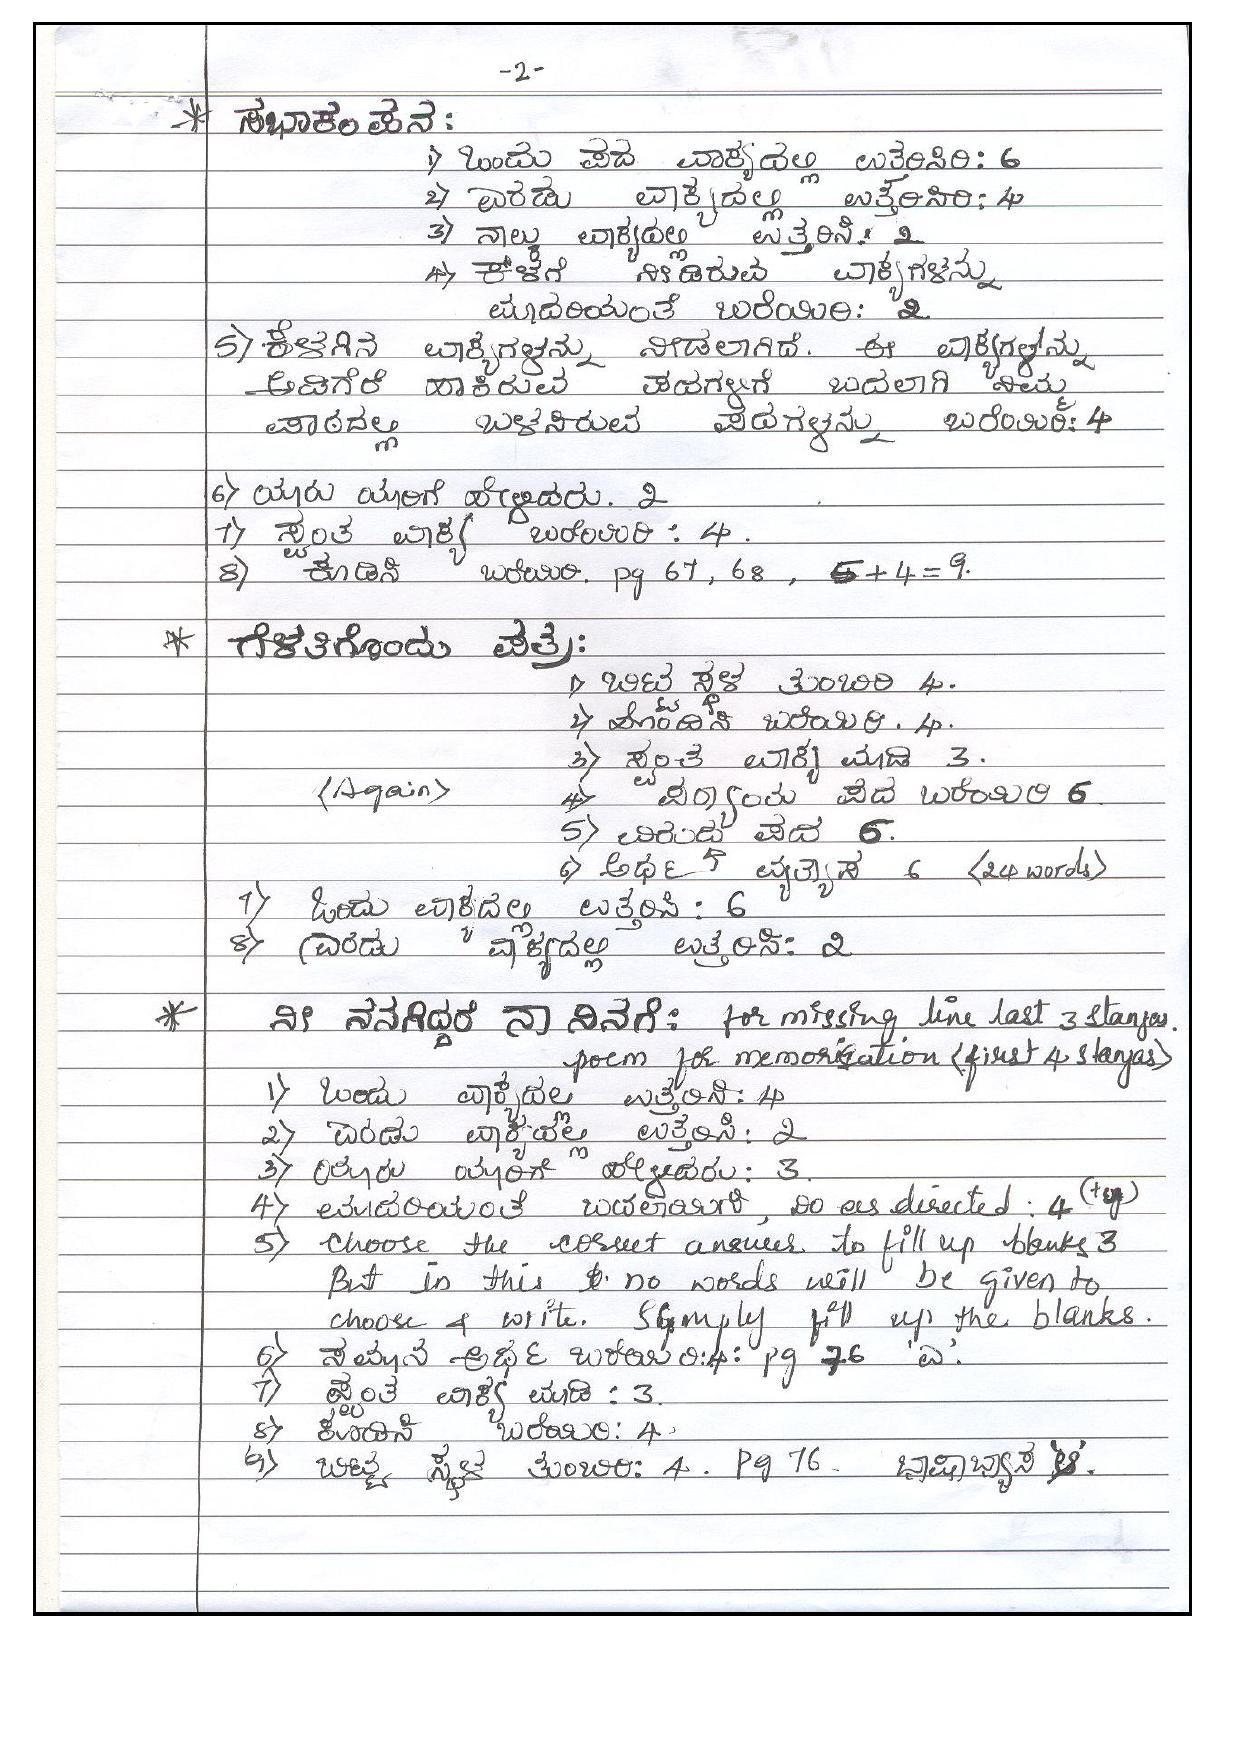 -2-
* ಸಭಾಕಂಪನ:
1) ಒಂದು ಪದ ವಾಕ್ಯದಲ್ಲಿ ಉತ್ತರಿಸಿರಿ: 6
2) ಎರಡು ವಾಕ್ಯದಲ್ಲಿ ಉತ್ತರಿಸಿರಿ: 4
3) ನಾಲ್ಕು ವಾಕ್ಯದಲ್ಲಿ ಉತ್ತರಿಸಿ: 2
4) ಕೆಳಗೆ ನೀಡಿರುವ ವಾಕ್ಯಗಳನ್ನು
ಮಾದರಿಯಂತೆ ಬರೆಯಿರಿ: 2
5) ಕೆಳಗಿನ ವಾಕ್ಯಗಳನ್ನು ನೀಡಲಾಗಿದೆ. ಈ ವಾಕ್ಯಗಳನ್ನು
ಅಡಿಗೆರೆ ಹಾಕಿರುವ ಪದಗಳಿಗೆ ಬದಲಾಗಿ ನಿಮ್ಮ
ಪಾಠದಲ್ಲಿ ಬಳಸಿರುವ ಪದಗಳನ್ನು ಬರೆಯಿರಿ: 4
6) ಯಾರು ಯಾರಿಗೆ ಹೇಳಿದರು. 2
7) ಸ್ವಂತ ವಾಕ್ಯ ಬರೆಯಿರಿ: 4.
8) ಕೂಡಿಸಿ ಬರೆಯಿರಿ. pg 67, 68, 5+4=9.
* ಗೆಳತಿಗೊಂದು ಪತ್ರ:
1) ಬಿಟ್ಟ ಸ್ಥಳ ತುಂಬಿರಿ 4.
2) ಹೊಂದಿಸಿ ಬರೆಯಿರಿ. 4.
3) ಸ್ವಂತ ವಾಕ್ಯ ಮಾಡಿ 3.
(Again) 4) ಪದ ಬರೆಯಿರಿ 6
5) ವಿರುದ್ಧ ಪದ 6.
6) ಅರ್ಥ ವ್ಯತ್ಯಾಸ 6 (24 words)
7) ಒಂದು ವಾಕ್ಯದಲ್ಲಿ ಉತ್ತರಿಸಿ: 6
8) ಎರಡು ವಾಕ್ಯದಲ್ಲಿ ಉತ್ತರಿಸಿ: 2
* ನೀ ನನಗಿದ್ದರೆ ನಾ ನಿನಗೆ: for missing line last 3 stanzas.
poem for memorization (first 4 stanzas)
1) ಒಂದು ವಾಕ್ಯದಲ್ಲಿ ಉತ್ತರಿಸಿ: 4
2) ಎರಡು ವಾಕ್ಯದಲ್ಲಿ ಉತ್ತರಿಸಿ: 2
3) ಯಾರು ಯಾರಿಗೆ ಹೇಳಿದರು: 3
4) ಮಾದರಿಯಂತೆ ಬದಲಾಯಿಸಿರಿ, Do as directed: 4
5) choose the correct answer to fill up blanks 3
But in this no words will be given to
choose & write. Simply fill up the blanks.
6) ಸಮಾನ ಅರ್ಥ ಬರೆಯಿರಿ:4: pg 76 'ಎ'.
7) ಸ್ವಂತ ವಾಕ್ಯ ಮಾಡಿ: 3.
8) ಕೂಡಿಸಿ ಬರೆಯಿರಿ: 4.
9) ಬಿಟ್ಟ ಸ್ಥಳ ತುಂಬಿರಿ: 4. pg 76. ಭಾಷಾಭ್ಯಾಸ